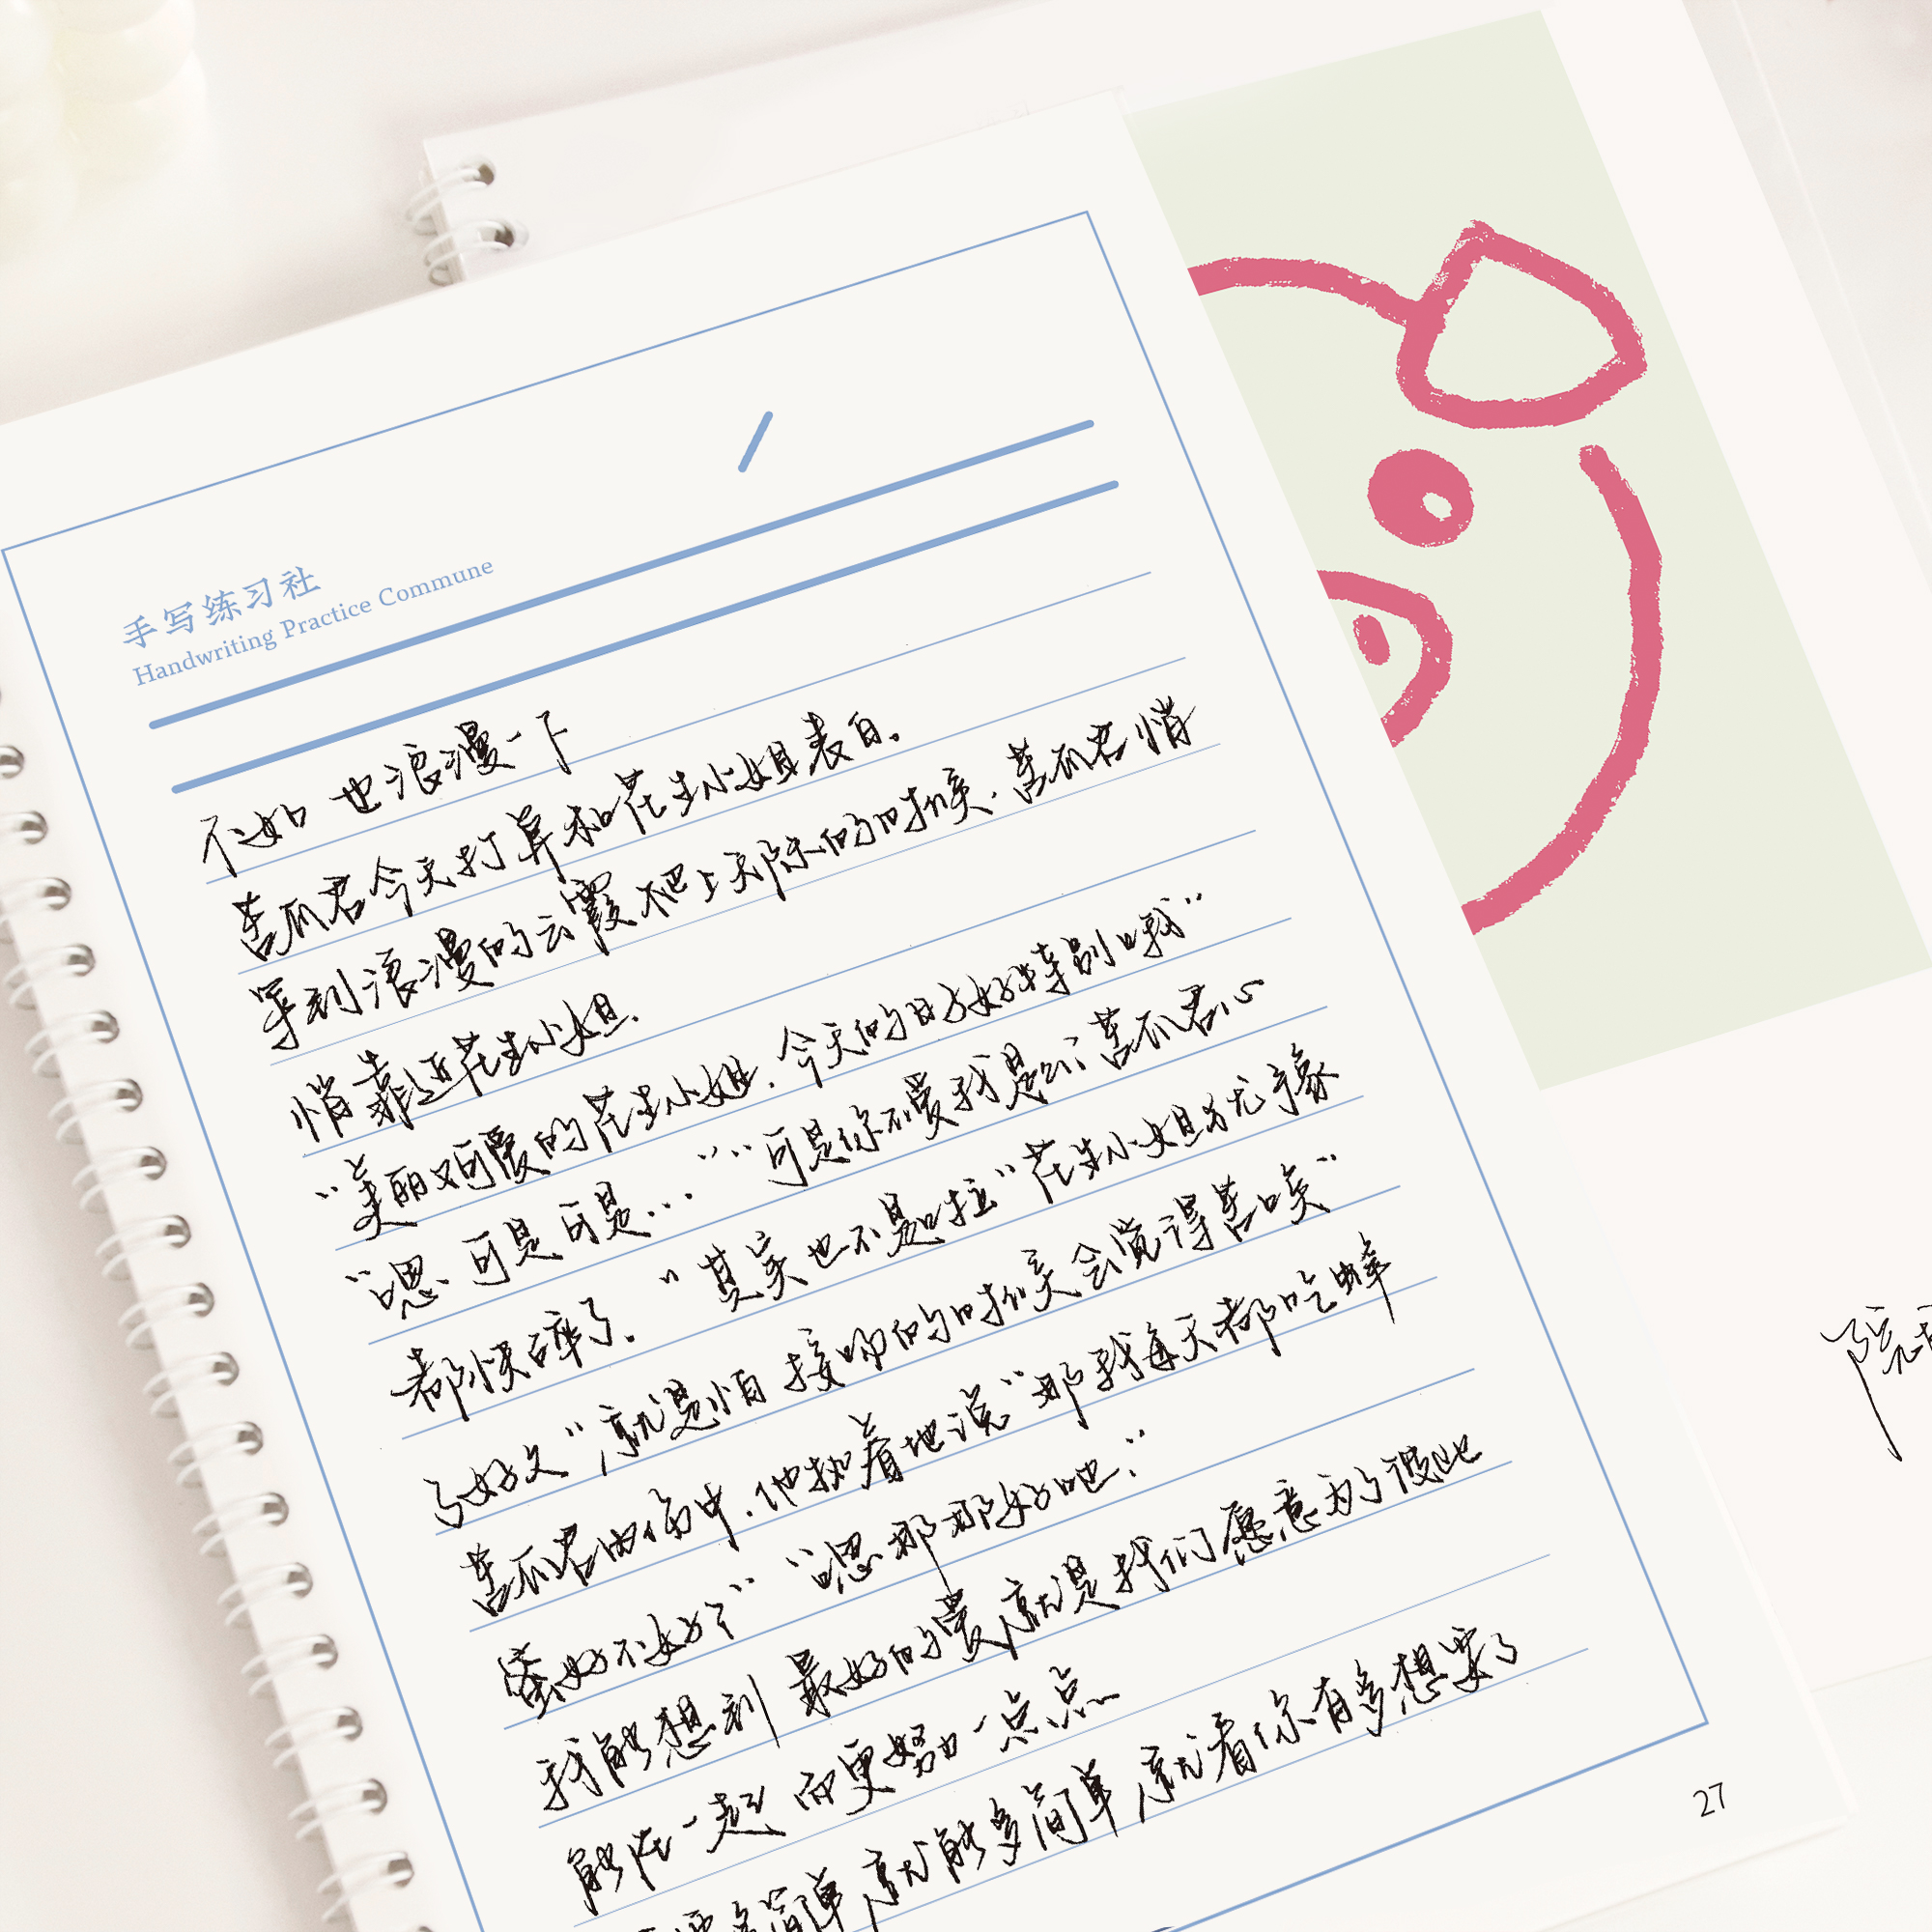 手写练习社
Handwriting Practice Commune
不如 也浪漫一下
苦瓜君今天打算和花生小姐表白.
等到浪漫的云霞爬上天际的时候.苦瓜君悄
悄靠近花生小姐.
“美丽又可爱的花生小姐.今天的日子好特别哦”
“嗯、可是可是...”“可是你不爱我是么”苦瓜君心
都快碎了.“其实也不是啦”花生小姐犹豫
了好久“就是怕接吻的时候会觉得苦唉”
苦瓜君由伤中.他执着地说“那我每天都吃蜂
蜜好不好?”“嗯那那好吧.”
我能想到最好的爱,就是我们愿意为了彼此
能在一起而更努力一点点
简单,就能多简单,就看你有多想要了
27